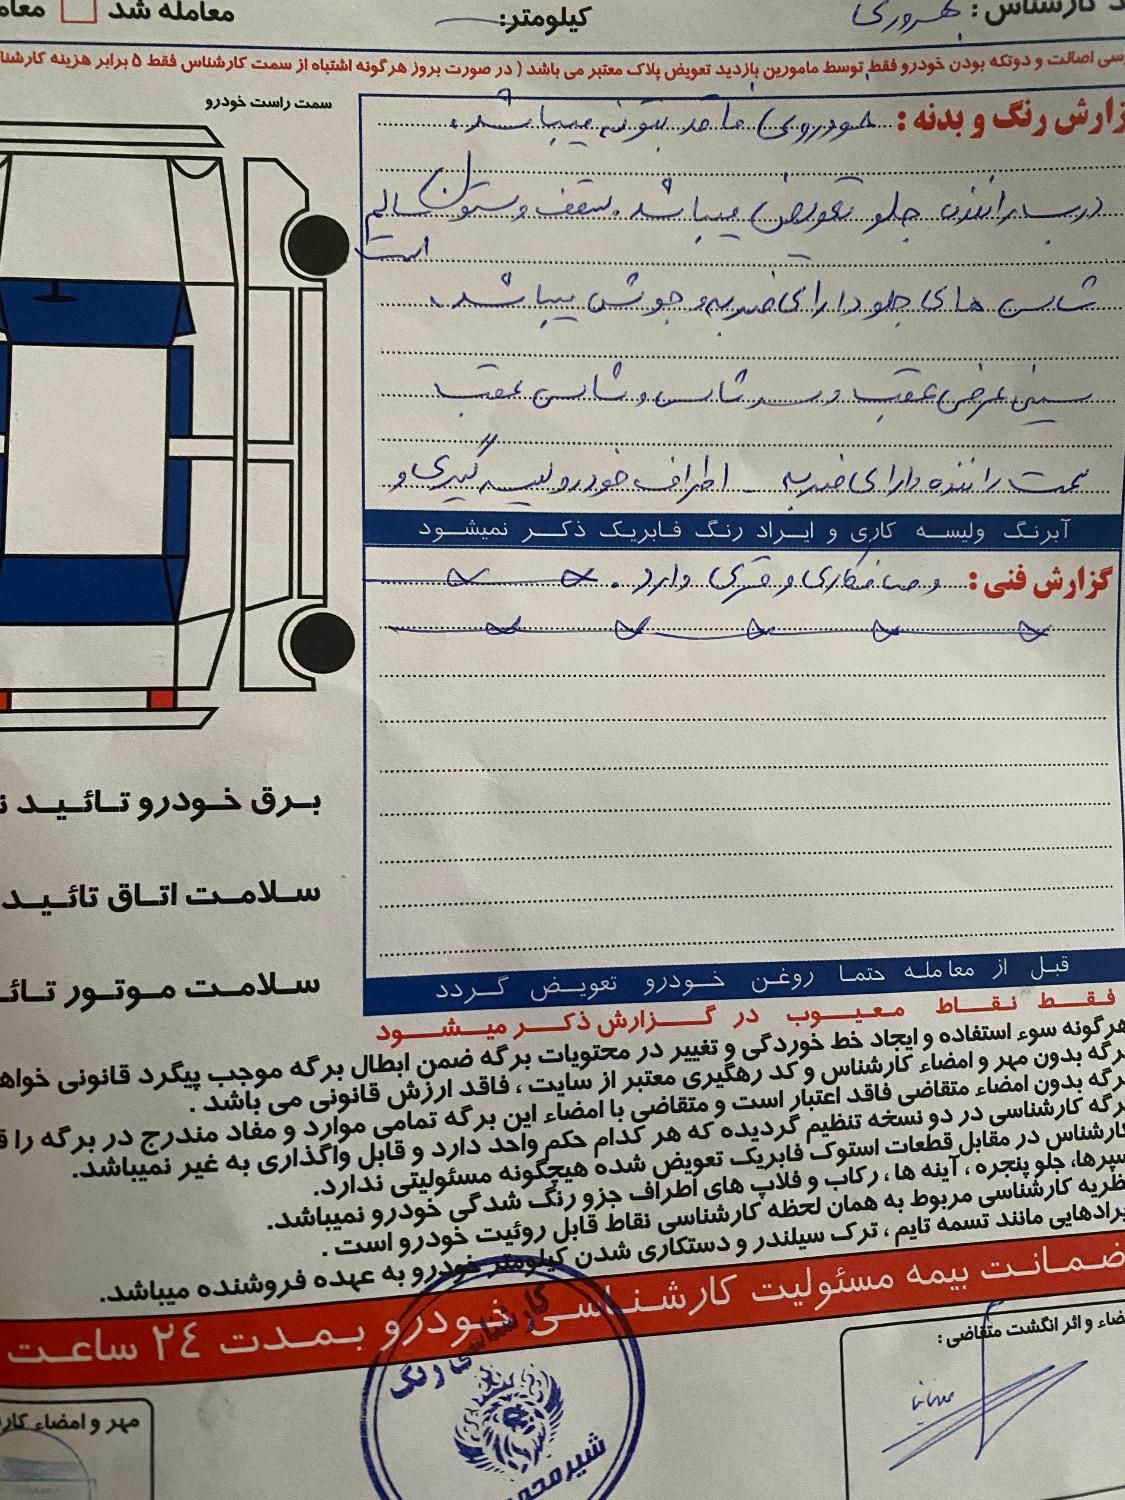 کارشناس: بهروزی
کیلومتر:
معامله شد
اصالت و دوتکه بودن خودرو فقط توسط مامورین بازدید تعویض پلاک معتبر می باشد ( در صورت بروز هرگونه اشتباه از سمت کارشناس فقط ۵ برابر هزینه
سمت راست خودرو
گزارش رنگ و بدنه: خودروی فاقد بتونه میباشد.
درب راننده جلو تعویض میباشد. سقف و ستون سالم
است
شاسی های جلو دارای ضربه و جوش میباشد.
سینی عرضی عقب و سر شاسی و شاسی عقب
سمت راننده دارای ضربه - اطراف خودرو لیسه گیری و
آبرنگ ولیسه کاری و ایراد رنگ فابریک ذکر نمیشود
گزارش فنی: و صافکاری و قری دارد.
برق خودرو تائید
سلامت اتاق تائید
سلامت موتور
قبل از معامله حتما روغن خودرو تعویض گردد
فقط نقاط معیوب در گزارش ذکر میشود
هرگونه سوء استفاده و ایجاد خط خوردگی و تغییر در محتویات برگه ضمن ابطال برگه موجب پیگرد قانونی
برگه بدون مهر و امضاء کارشناس و کد رهگیری معتبر از سایت ، فاقد ارزش قانونی می باشد .
برگه بدون امضاء متقاضی فاقد اعتبار است و متقاضی با امضاء این برگه تمامی موارد و مفاد مندرج در برگه را
برگه کارشناسی در دو نسخه تنظیم گردیده که هر کدام حکم واحد دارد و قابل واگذاری به غیر نمیباشد.
کارشناس در مقابل قطعات استوک فابریک تعویض شده هیچگونه مسئولیتی ندارد.
سپرها، جلو پنجره ، آینه ها ، رکاب و فلاپ های اطراف جزو رنگ شدگی خودرو نمیباشد.
نظریه کارشناسی مربوط به همان لحظه کارشناسی نقاط قابل روئیت خودرو است .
ایرادهایی مانند تسمه تایم ، ترک سیلندر و دستکاری شدن کیلومتر خودرو به عهده فروشنده میباشد.
ضمانت بیمه مسئولیت کارشناسی خودرو بمدت ٢٤ ساعت
امضاء و اثر انگشت متقاضی:
مهر و امضاء
کارشناسی رنگ